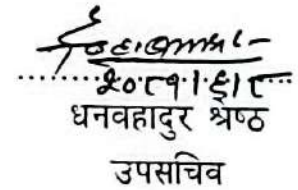 २०८१।६।८
धनवहादुर श्रेष्ठ
उपसचिव